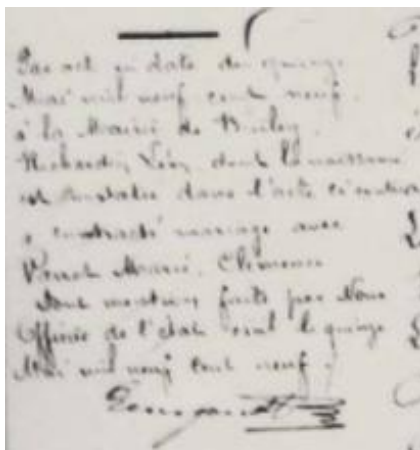 Par act en date du quinze
Mai mil neuf cent neuf
à la Mairie de
Richardin Léon dont la naissance
est constatée dans l'acte ci contre
a contracté mariage avec
Marie Clémence
Dont mention faite par Nous
Officier de l'état civil le quinze
Mai mil neuf cent neuf.